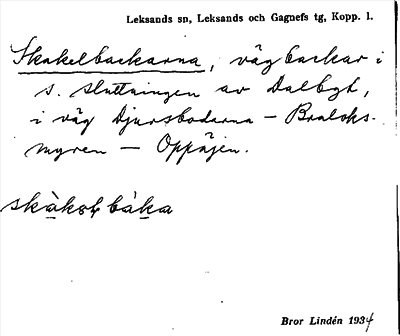 Leksands sn, Leksands och Gagnefs tg, Kopp. l.
Skakelbackarna, vägbackar i
s. sluttningen av Dalbyt,
i väg Djursbodarna – Braloks-
myren – Oppåjen.
skàkəlbàka
Bror Lindén 1934